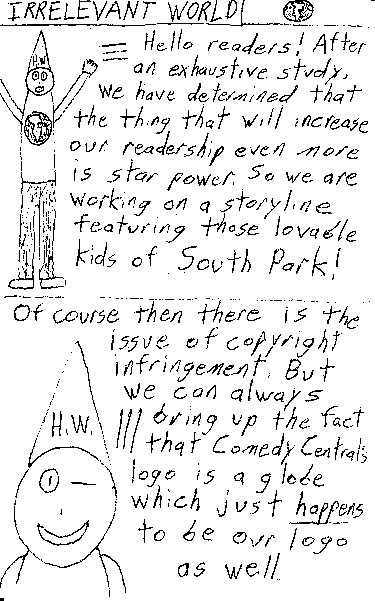 IRRELEVANT WORLD!
Hello readers! After
an exhaustive study,
we have determined that
the thing that will increase
our readership even more
is star power. So we are
working on a storyline
featuring those lovable
kids of South Park!
Of course then there is the
issue of copyright
infringement. But
we can always
bring up the fact
that Comedy Central's
logo is a globe
which just happens
to be our logo
as well
H.W.